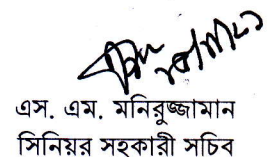 এস. এম. মনিরুজ্জামান
সিনিয়র সহকারী সচিব